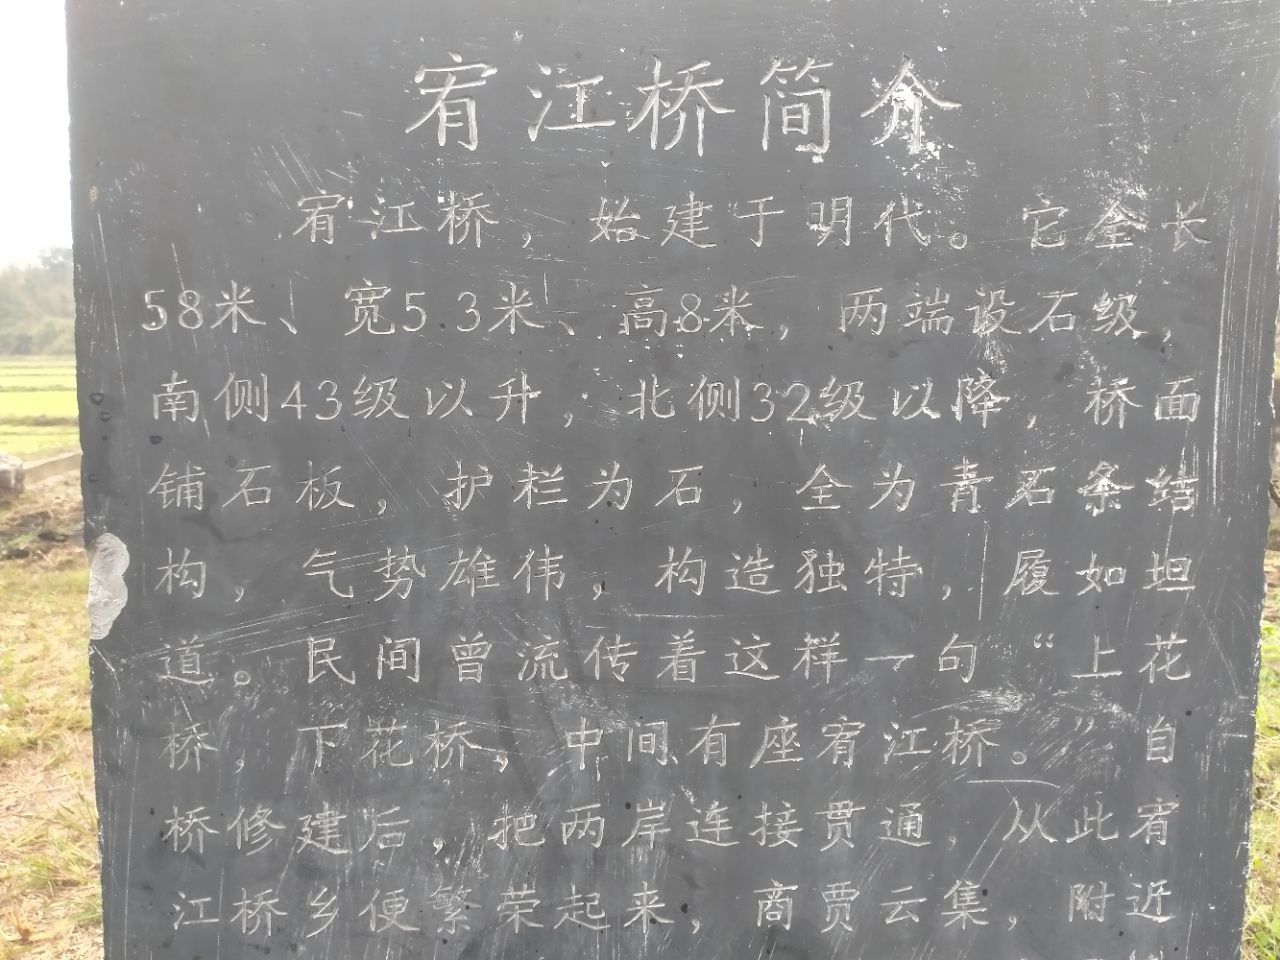 宥江桥简介
宥江桥，始建于明代。它全长
58米、宽5.3米、高8米，两端设石级，
南侧43级以升，北侧32级以降，桥面
铺石板，护栏为石，全为青石条结
构，气势雄伟，构造独特，履如坦
道。民间曾流传着这样一句“上花
桥，下花桥，中间有座宥江桥。”自
桥修建后，把两岸连接贯通，从此宥
江桥乡便繁荣起来，商贾云集，附近